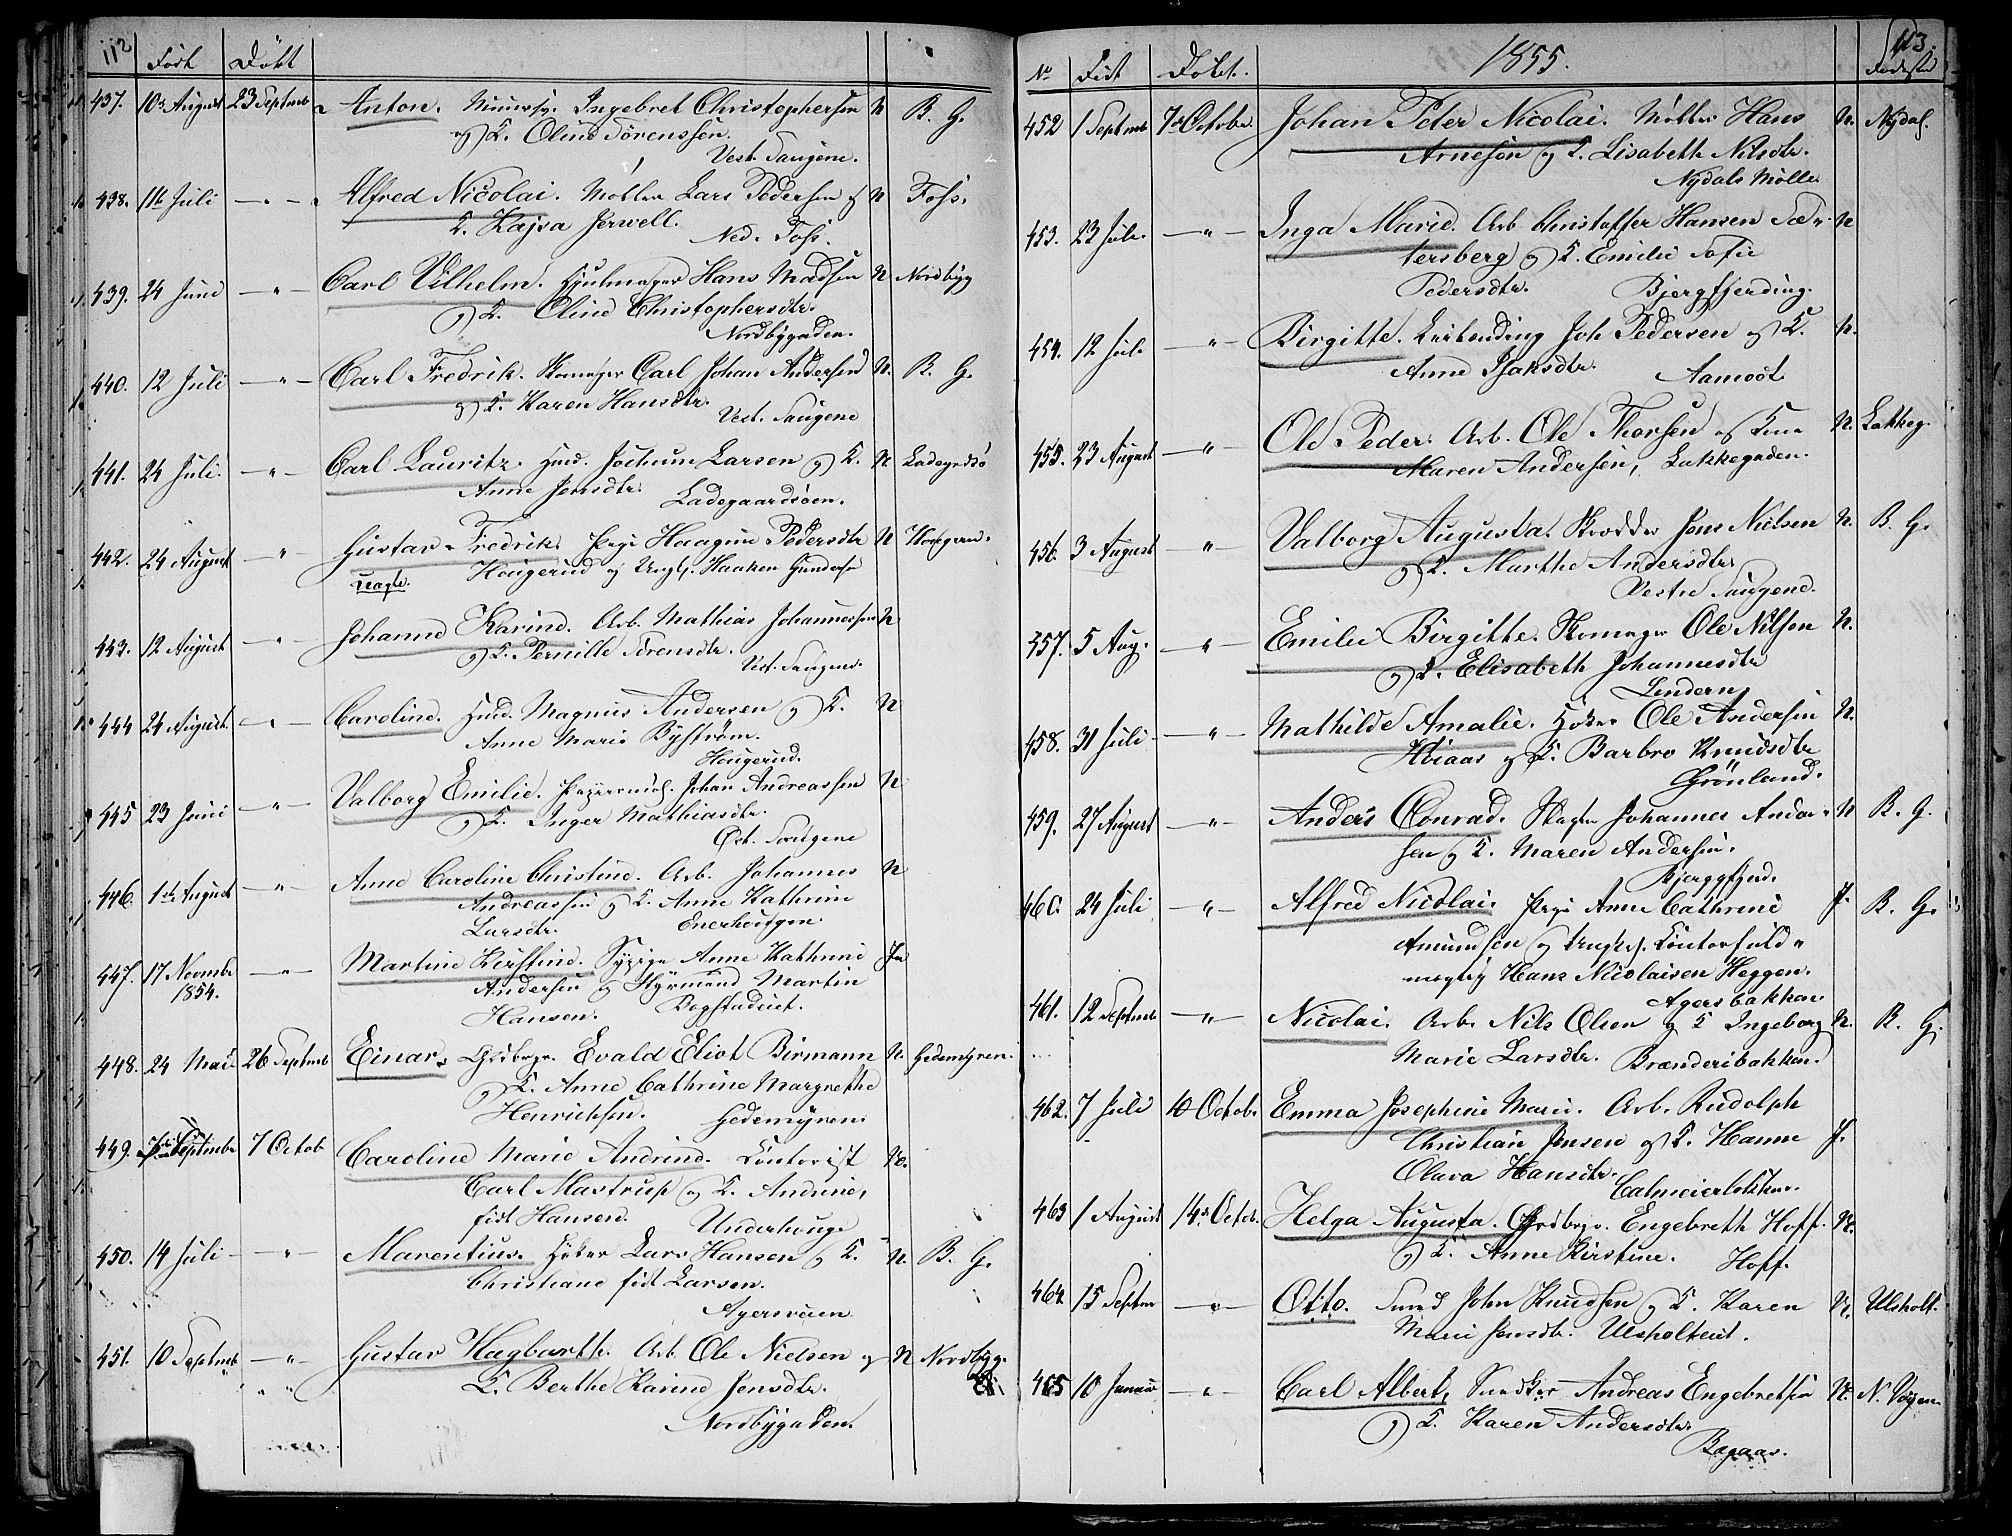 112
Født Døbt
437. 10de August 23 Septemb Anton. Ingebret Christophersen N B. G.
og K. Oline Sørenssen.
Vest. Saugene.
438. 11te Juli — " — Alfred Nicolai. Møller Lars Pedersen og N Foss.
K. Kajsa Jerwell.
Ned. Foss.
439. 24 Juni — " — Carl Vilhelm. Hjulmager Hans Madsen N Nordbyg
og K. Oline Christophersdtr.
Nordbygaden.
440. 12 Juli — " — Carl Fredrik. Skomager Carl Johan Andersen N. B. G.
og K. Karen Hansdtr.
Vest. Saugene
441. 24 Juli. — " — Carl Lauritz. Huusm. Jochum Larsen og K. N Ladegrdsø
Anne Jensdtr.
Ladegaardsøen.
442. 24 August — " Gustav Fredrik. Pige Haagine Pedersdtr N Hougerud.
uægte. Hougerud og Ungk. Haaken Gunders
443. 12 August — " — Johanne Karine. Arb. Mathias Johannessen N
og K. Pernille Sørensdtr.
Vest. Saugene.
444 24 August. — " — Caroline. Huusm. Magnus Andersen og K. N
Anne Marie Byström.
Hougerud.
445 23 Juni — " — Valborg Emilie. Johan Andreassen N
og K. Inger Mathiasdtr.
Øst. Saugene
446. 1ste August — " — Anne Caroline Christine. Arb. Johannes N
Andreassen og K. Anne Kathrine
Larsdtr. Enerhougen.
447. 17 Novembr — " — Martine Kirstine. Sypige Anne Kathrine Ja
1854. Andersen og Styrmand Martin
Hansen. Bogstadveit.
448. 24 Mai 26 Septemb Einar. Grdbrgr. Evald Eliot Birmann N. Hedemyren.
og K. Anne Cathrine Margrethe
Henrichsen. Hedemyren.
449. Septembr 7 Octob Caroline Marie Andrine. Kontorist N.
Carl Mastrup og K. Andrine,
født Hansen. Underhouge
450. 14 Juli — " Marentius. Høker Lars Hansen og K. N. B. G.
Christiane født Larsen.
Agersveien
451. 10 Septemb — " — Gustav Hagbarth. Arb. Ole Nielsen og N Nordbyg.
K. Berthe Karine Jensdtr.
Nordbygaden.
113.
No Født Døbt. 1855.
452 1 Septemb 7de Octobr Johan Peter Nicolai. Møller Hans N. Nydal.
Arnesen og K. Lisabeth Nilsdtr.
Nydals Mølle.
453. 23 Juli. — " — Inga Marie. Arb Christoffer Hansen Sæ- N
tersberg og K. Emilie Sofie
Pedersdtr. Bjergfjerding.
454. 12 Juli — " — Birgitte. Joh Pedersen og K. N.
Anne Isaksdtr.
Aamodt
455. 23 August — " — Ole Peder. Arb. Ole Thorsen og Kone N. Lakkeg.
Maren Andersen, Lakkegaden.
456. 3 August — " — Valborg Augusta. Skrædder Jens Nielsen N. B. G.
og K. Marthe Andersdtr.
Vestre Saugene.
457. 5 Aug. — " — Emilie Birgitte. Skomager Ole Nilsen N.
og K. Elisabeth Johannesdtr
Lindern
458. 31 Juli — " — Mathilde Amalie. Høker Ole Andersen N.
Hviaas og K. Barbro Knudsdtr
Grönland.
459. 27 August — " — Anders Conrad. Slagter Johannes Ander- N B. G.
sen og K. Maren Andersen.
Bjerggfjerd.
460. 24 Juli — " — Alfred Nicolai. Pige Anne Cathrine J. B. G.
Amundsen og Ungk. Kontorfuld-
mægtig Hans Nicolaisen Heggen.
Agersbakken
461. 12 Septemb — " — Nicolai. Arb. Nils Olsen og K Ingeborg N. B. G.
Marie Larsdtr. Brænderibakken.
462. 7 Juli 10 Octob. Emma Josephine Marie. Arb. Rudolph
Christian Jensen og K. Hanne J.
Olava Hansdtr.
Calmeierløkken.
463 1 August 14de Octob. Helga Augusta. Grdbrgr. Engebreth Hoff. N.
og K. Anne Kirstine. Hoff.
464. 15 Septem — " — Otto. Smed John Knudsen og K. Karen N. Ulsholt.
Marie Jensdtr. Ulsholtveit.
465 10 Januar — " — Carl Albert, Snedker Andreas Engebretsen N. N. Vøyen
og K. Karen Andersdtr.
Bagaas.